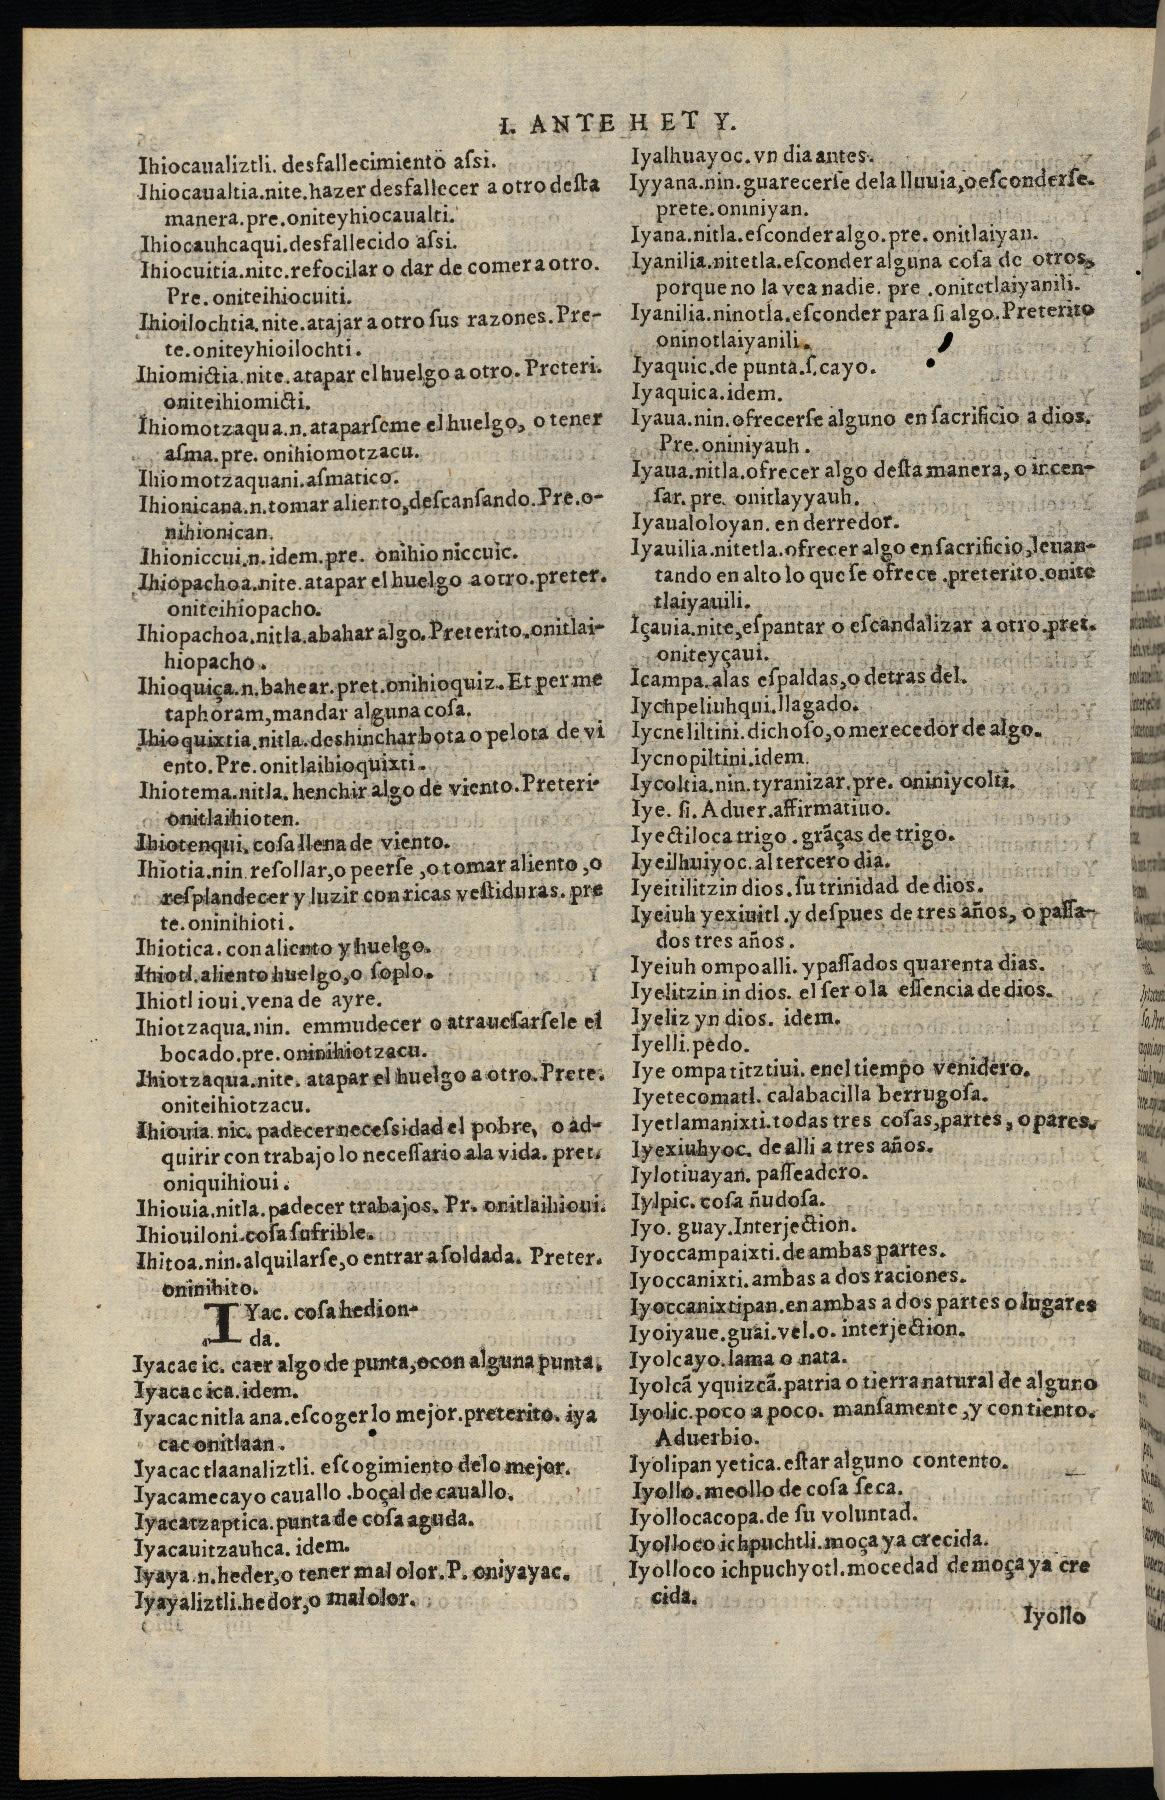 I. ANTE H ET Y.
Ihiocaualiztli. desfallecimiento aſsi.
Ihiocaualtia.nite.hazer desfallecer a otro deſta
manera.pre.oniteyhiocaualti.
Ihiocauhcaqui.desfallecido aſsi.
Ihiocuitia.nite.refocilar o dar de comer a otro.
Pre. oniteihiocuiti.
Ihioilochtia.nite.atajar a otro ſus razones.Pre-
te.oniteyhioilochti.
Ihiomictia.nite.atapar el huelgo a otro. Preteri.
oniteihiomicti.
Ihiomotzaqua.n.ataparſeme el huelgo, o tener
aſma.pre. onihiomotzacu.
Ihiomotzaquani.aſmatico.
Ihionicana.n.tomar aliento,deſcanſando.Pre.o-
nihionican.
Ihioniccui.n.idem.pre. onihio niccuic.
Ihiopachoa.nite.atapar el huelgo a otro.preter.
oniteihiopacho.
Ihiopachoa.nitla.abahar algo.Preterito.onitlai-
hiopacho.
Ihioquiça.n.bahear.pret.onihioquiz. Et per me
taphoram,mandar alguna coſa.
Ihioquixtia.nitla.deshinchar bota o pelota de vi
ento.Pre.onitlaihioquixti.
Ihiotema.nitla.henchir algo de viento.Preteri-
onitlaihioten.
Ihiotenqui.coſa llena de viento.
Ihiotia.nin.reſollar,o peerſe ,o tomar aliento ,o
reſplandecer y luzir con ricas veſtiduras. pre
te.oninihioti.
Ihiotica. con aliento y huelgo.
Ihiotl.aliento huelgo,o ſoplo.
Ihiotl ioui.vena de ayre.
Ihiotzaqua.nin. emmudecer o atraueſarſele el
bocado.pre.oninihiotzacu.
Ihiotzaqua.nite. atapar el huelgo a otro.Prete.
oniteihiotzacu.
Ihiouia.nic. padecer neceſsidad el pobre, o ad-
quirir con trabajo lo neceſſario ala vida.pret.
oniquihioui.
Ihiouia.nitla.padecer trabajos. Pr. onitlaihioui.
Ihiouiloni.coſa ſufrible.
Ihitoa.nin.alquilarſe,o entrar a ſoldada. Preter.
oninihito.
IYac. coſa hedion-
da.
Iyacac ic. caer algo de punta,o con alguna punta.
Iyacac ica.idem.
Iyacac nitla ana.eſcoger lo mejor.preterito. iya
cac onitlaan.
Iyacac tlaanaliztli. eſcogimiento delo mejor.
Iyacamecayo cauallo .boçal de cauallo.
Iyacatzaptica.punta de coſa aguda.
Iyacauitzauhca. idem.
Iyaya.n.heder,o tener mal olor. P. oniyayac.
Iyayaliztli.hedor,o mal olor.
Iyalhuayoc.vn dia antes.
Iyyana.nin.guarecerſe dela lluuia,o eſconderſe.
prete.oniniyan.
Iyana.nitla.eſconder algo.pre. onitlaiyan.
Iyanilia.nitetla.eſconder alguna coſa de otros,
porque no la vea nadie. pre .onitetlaiyanili.
Iyanilia.ninotla.eſconder para ſi algo.Preterito
oninotlaiyanili.
Iyaquic.de punta.ſ.cayo.
Iyaquica.idem.
Iyaua.nin.ofrecerſe alguno en ſacrificio a dios.
Pre.oniniyauh.
Iyaua.nitla.ofrecer algo deſta manera, o incen-
ſar.pre. onitlayyauh.
Iyaualoloyan. en derredor.
Iyauilia.nitetla.ofrecer algo en ſacrificio,leuan-
tando en alto lo que ſe ofrece .preterito.onite
tlaiyauili.
Içauia.nite,eſpantar o eſcandalizar a otro.pret.
oniteyçaui.
Icampa.alas eſpaldas,o detras del.
Iychpeliuhqui.llagado.
Iycneliltini.dichoſo,o merecedor de algo.
Iycnopiltini.idem.
Iycoltia.nin.tyranizar.pre. oniniycolti.
Iye. ſi. Aduer.affirmatiuo.
Iyectiloca trigo .grãças de trigo.
Iyeilhuiyoc.al tercero dia.
Iyeitilitzin dios.ſu trinidad de dios.
Iyeiuh yexiuitl .y deſpues de tres años, o paſſa-
dos tres años.
Iyeiuh ompoalli. y paſſados quarenta dias.
Iyelitzin in dios. el ſer o la eſſencia de dios.
Iyeliz yn dios. idem.
Iyelli.pedo.
Iye ompa titztiui. enel tiempo venidero.
Iyetecomatl. calabacilla berrugoſa.
Iyetlamanixti.todas tres coſas,partes, o pares.
Iyexiuhyoc. de alli a tres años.
Iylotiuayan. paſſeadero.
Iylpic. coſa ñudoſa.
Iyo. guay.Interjection.
Iyoccampaixti.de ambas partes.
Iyoccanixti.ambas a dos raciones.
Iyoccanixtipan.en ambas a dos partes o lugares
Iyoiyaue.guai.vel.o. interjection.
Iyolcayo.lama o nata.
Iyolcã yquizcã.patria o tierra natural de alguno
Iyolic.poco a poco. manſamente ,y con tiento.
Aduerbio.
Iyolipan yetica. eſtar alguno contento.
Iyollo.meollo de coſa ſeca.
Iyollocacopa.de ſu voluntad.
Iyolloco ichpuchtli.moça ya crecida.
Iyolloco ichpuchyotl.mocedad de moça ya cre
cida.
Iyollo